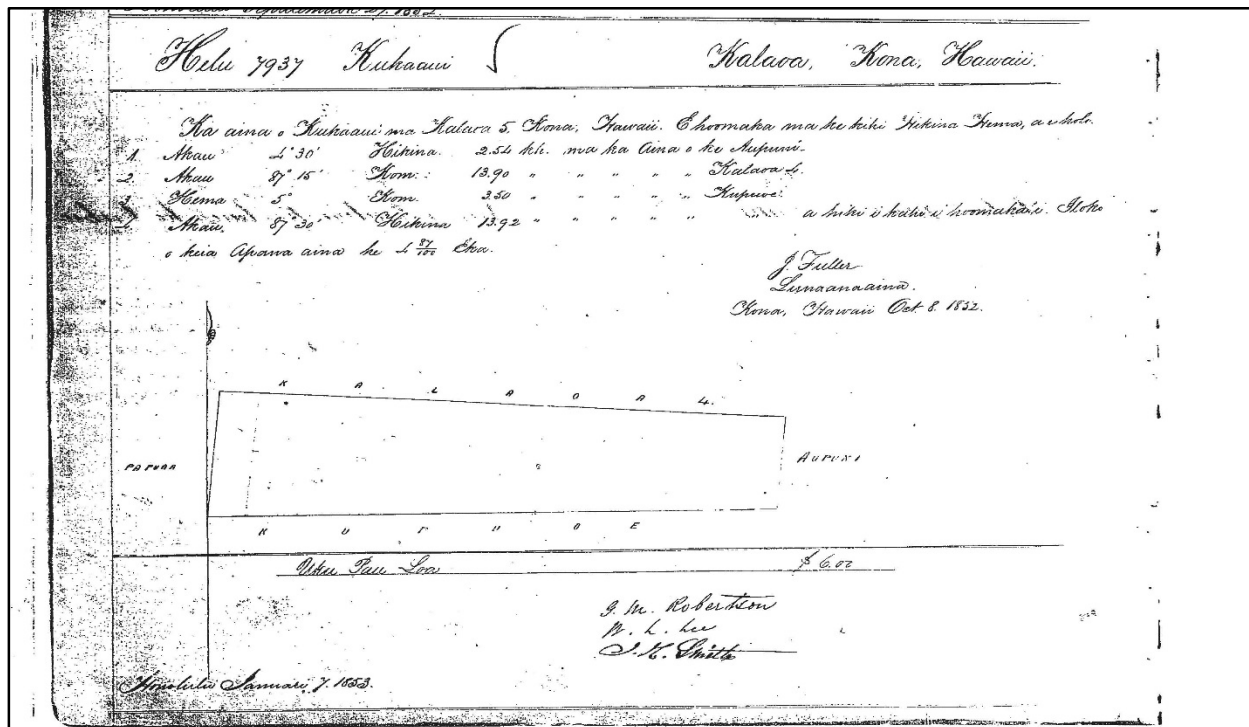 Helu 7937 Kukaaui Kalaoa, Kona, Hawaii.
Ka aina o Kukaaui ma Kalaoa 5. Kona, Hawaii. E hoomaka ma ke kihi Hikina Hema, a e holo
1. Akau 4° 30' Hikina. 2.54 kh. ma ka Aina o ke Aupuni.
2. Akau 87° 15' Kom. 13.90 " " " " " Kalaoa 4.
Hema 5° Kom. 3.50 " " " " "
Akau. 87° 30' Hikina 13.92 " " " " " a hiki i kahi i hoomaka'i. Iloko
o keia Apana aina he 4 87/100 Eka.
J. Fuller
Lunaanaaina.
Kona, Hawaii Oct. 8. 1852.
K A L A O A 4.
PAPUAA
AUPUNI
K U P U O E
Uku Pau Loa $ 6.00
G. M. Robertson
W. L. Lee
J. H. Smith
Honolulu Januari 7. 1853.